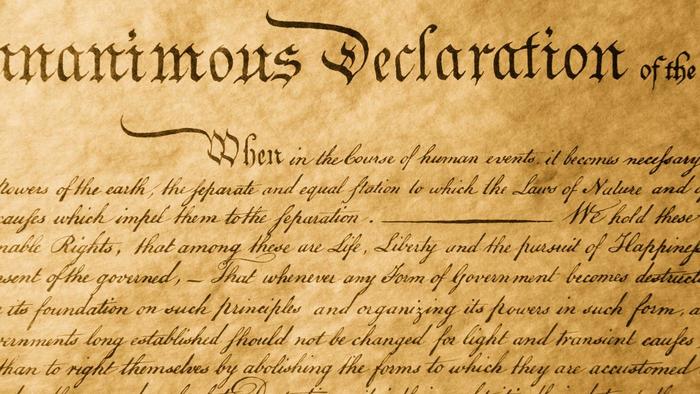 nanimous Declaration of the
When in the Course of human events, it becomes necessary
powers of the earth, the separate and equal station to which the Laws of Nature and
causes which impel them to the separation. ——— We hold these
nable Rights, that among these are Life, Liberty and the pursuit of Happiness
sent of the governed, — That whenever any Form of Government becomes destructi
its foundation on such principles and organizing its powers in such form, a
vernments long established should not be changed for light and transient causes
than to right themselves by abolishing the forms to which they are accustomed